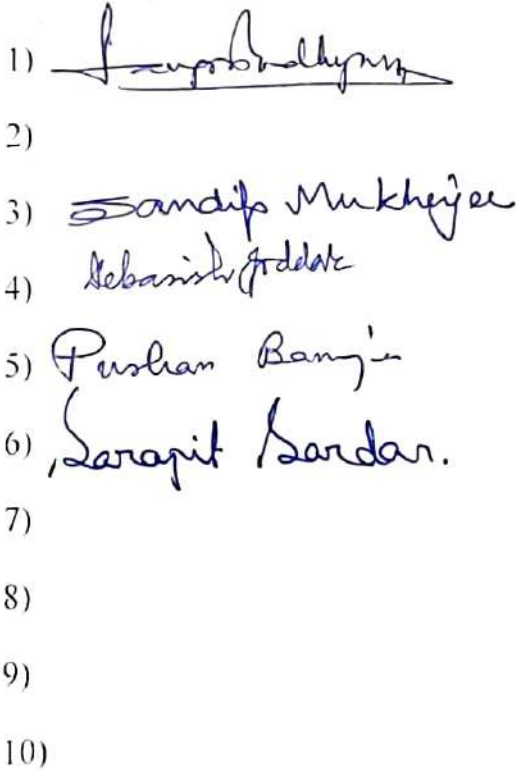 1)
2)
3) Sandip Mukherjee
4) Debasish
5) Pushan Banerjee
6) Sarajit Sardar.
7)
8)
9)
10)